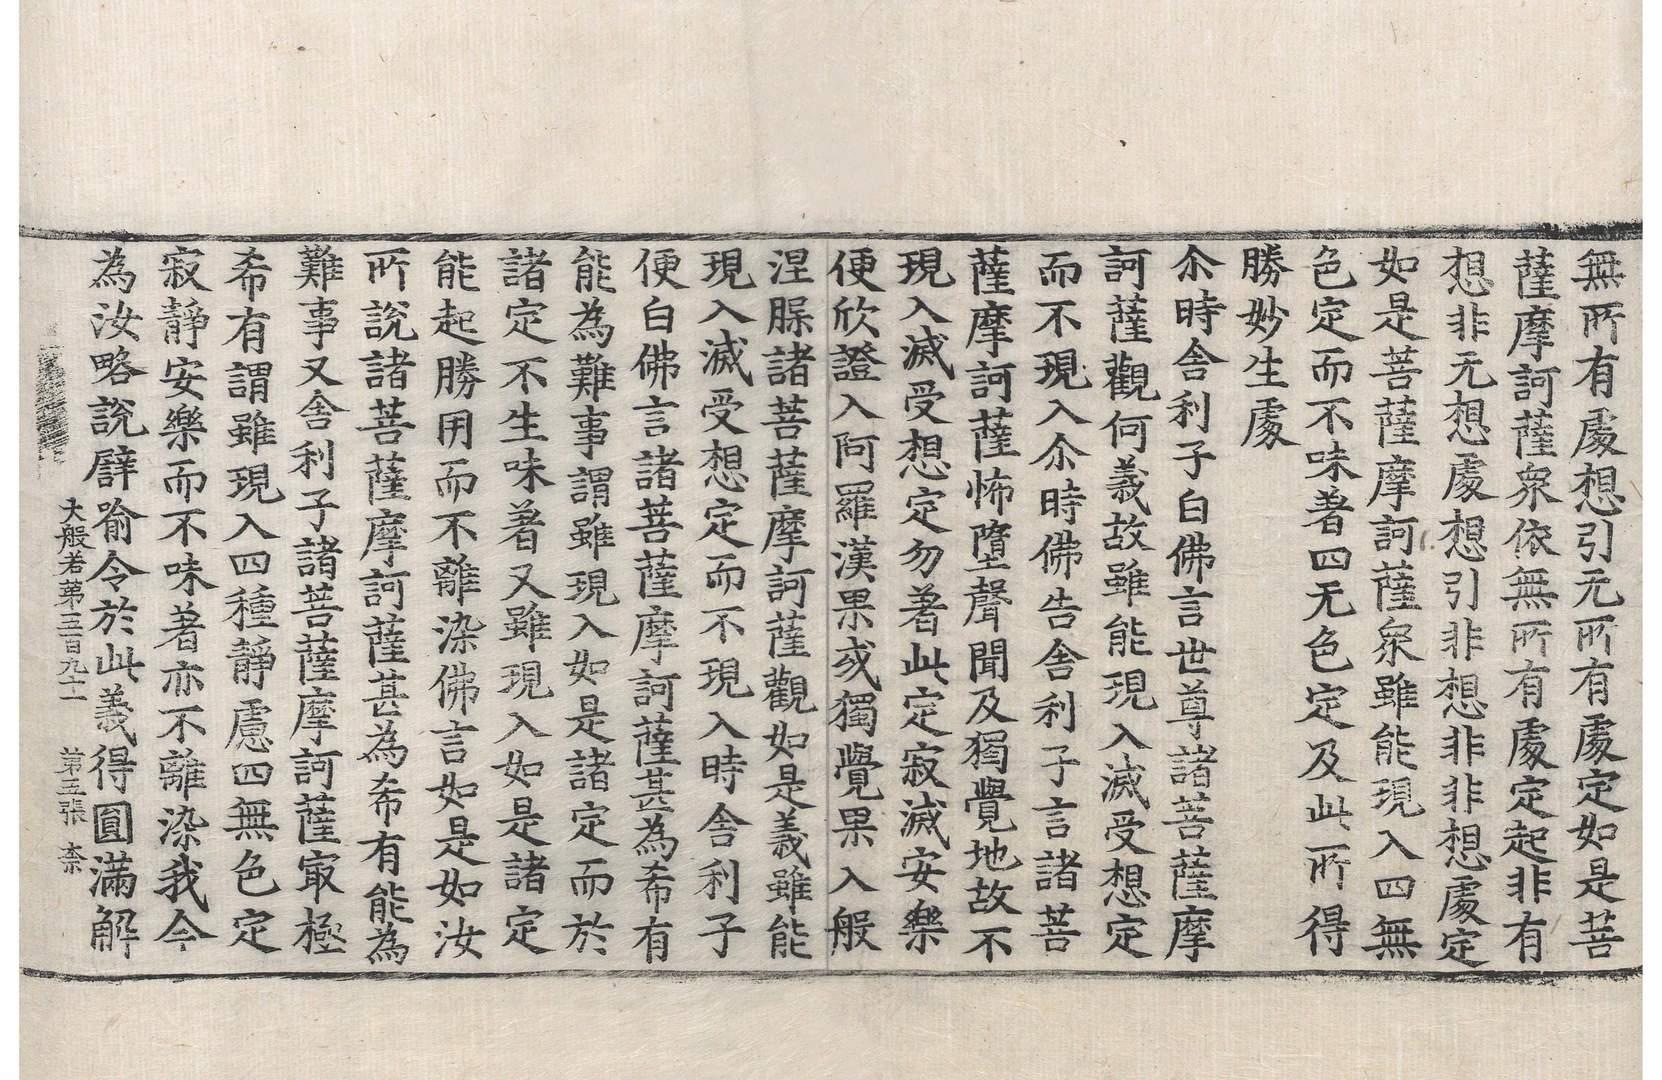 無所有處想引无所有處定如是菩
薩摩訶薩衆依無所有處定起非有
想非无想處想引非想非非想處定
如是菩薩摩訶薩衆雖能現入四無
色定而不味著四无色定及此所得
勝妙生處
尒時舍利子白佛言世尊諸菩薩摩
訶薩觀何義故雖能現入滅受想定
而不現入尒時佛告舍利子言諸菩
薩摩訶薩怖墮聲聞及獨覺地故不
現入滅受想定勿著此定寂滅安樂
便欣證入阿羅漢果或獨覺果入般
涅槃諸菩薩摩訶薩觀如是義雖能
現入滅受想定而不現入時舍利子
便白佛言諸菩薩摩訶薩甚為希有
能為難事謂雖現入如是諸定而於
諸定不生味著又雖現入如是諸定
能起勝用而不離染佛言如是如汝
所說諸菩薩摩訶薩甚為希有能為
難事又舍利子諸菩薩摩訶薩㝡極
希有謂雖現入四種靜慮四無色定
寂靜安樂而不味著亦不離染我今
為汝略說譬喻令於此義得圓滿解
大般若第三百九十二 第五張 柰